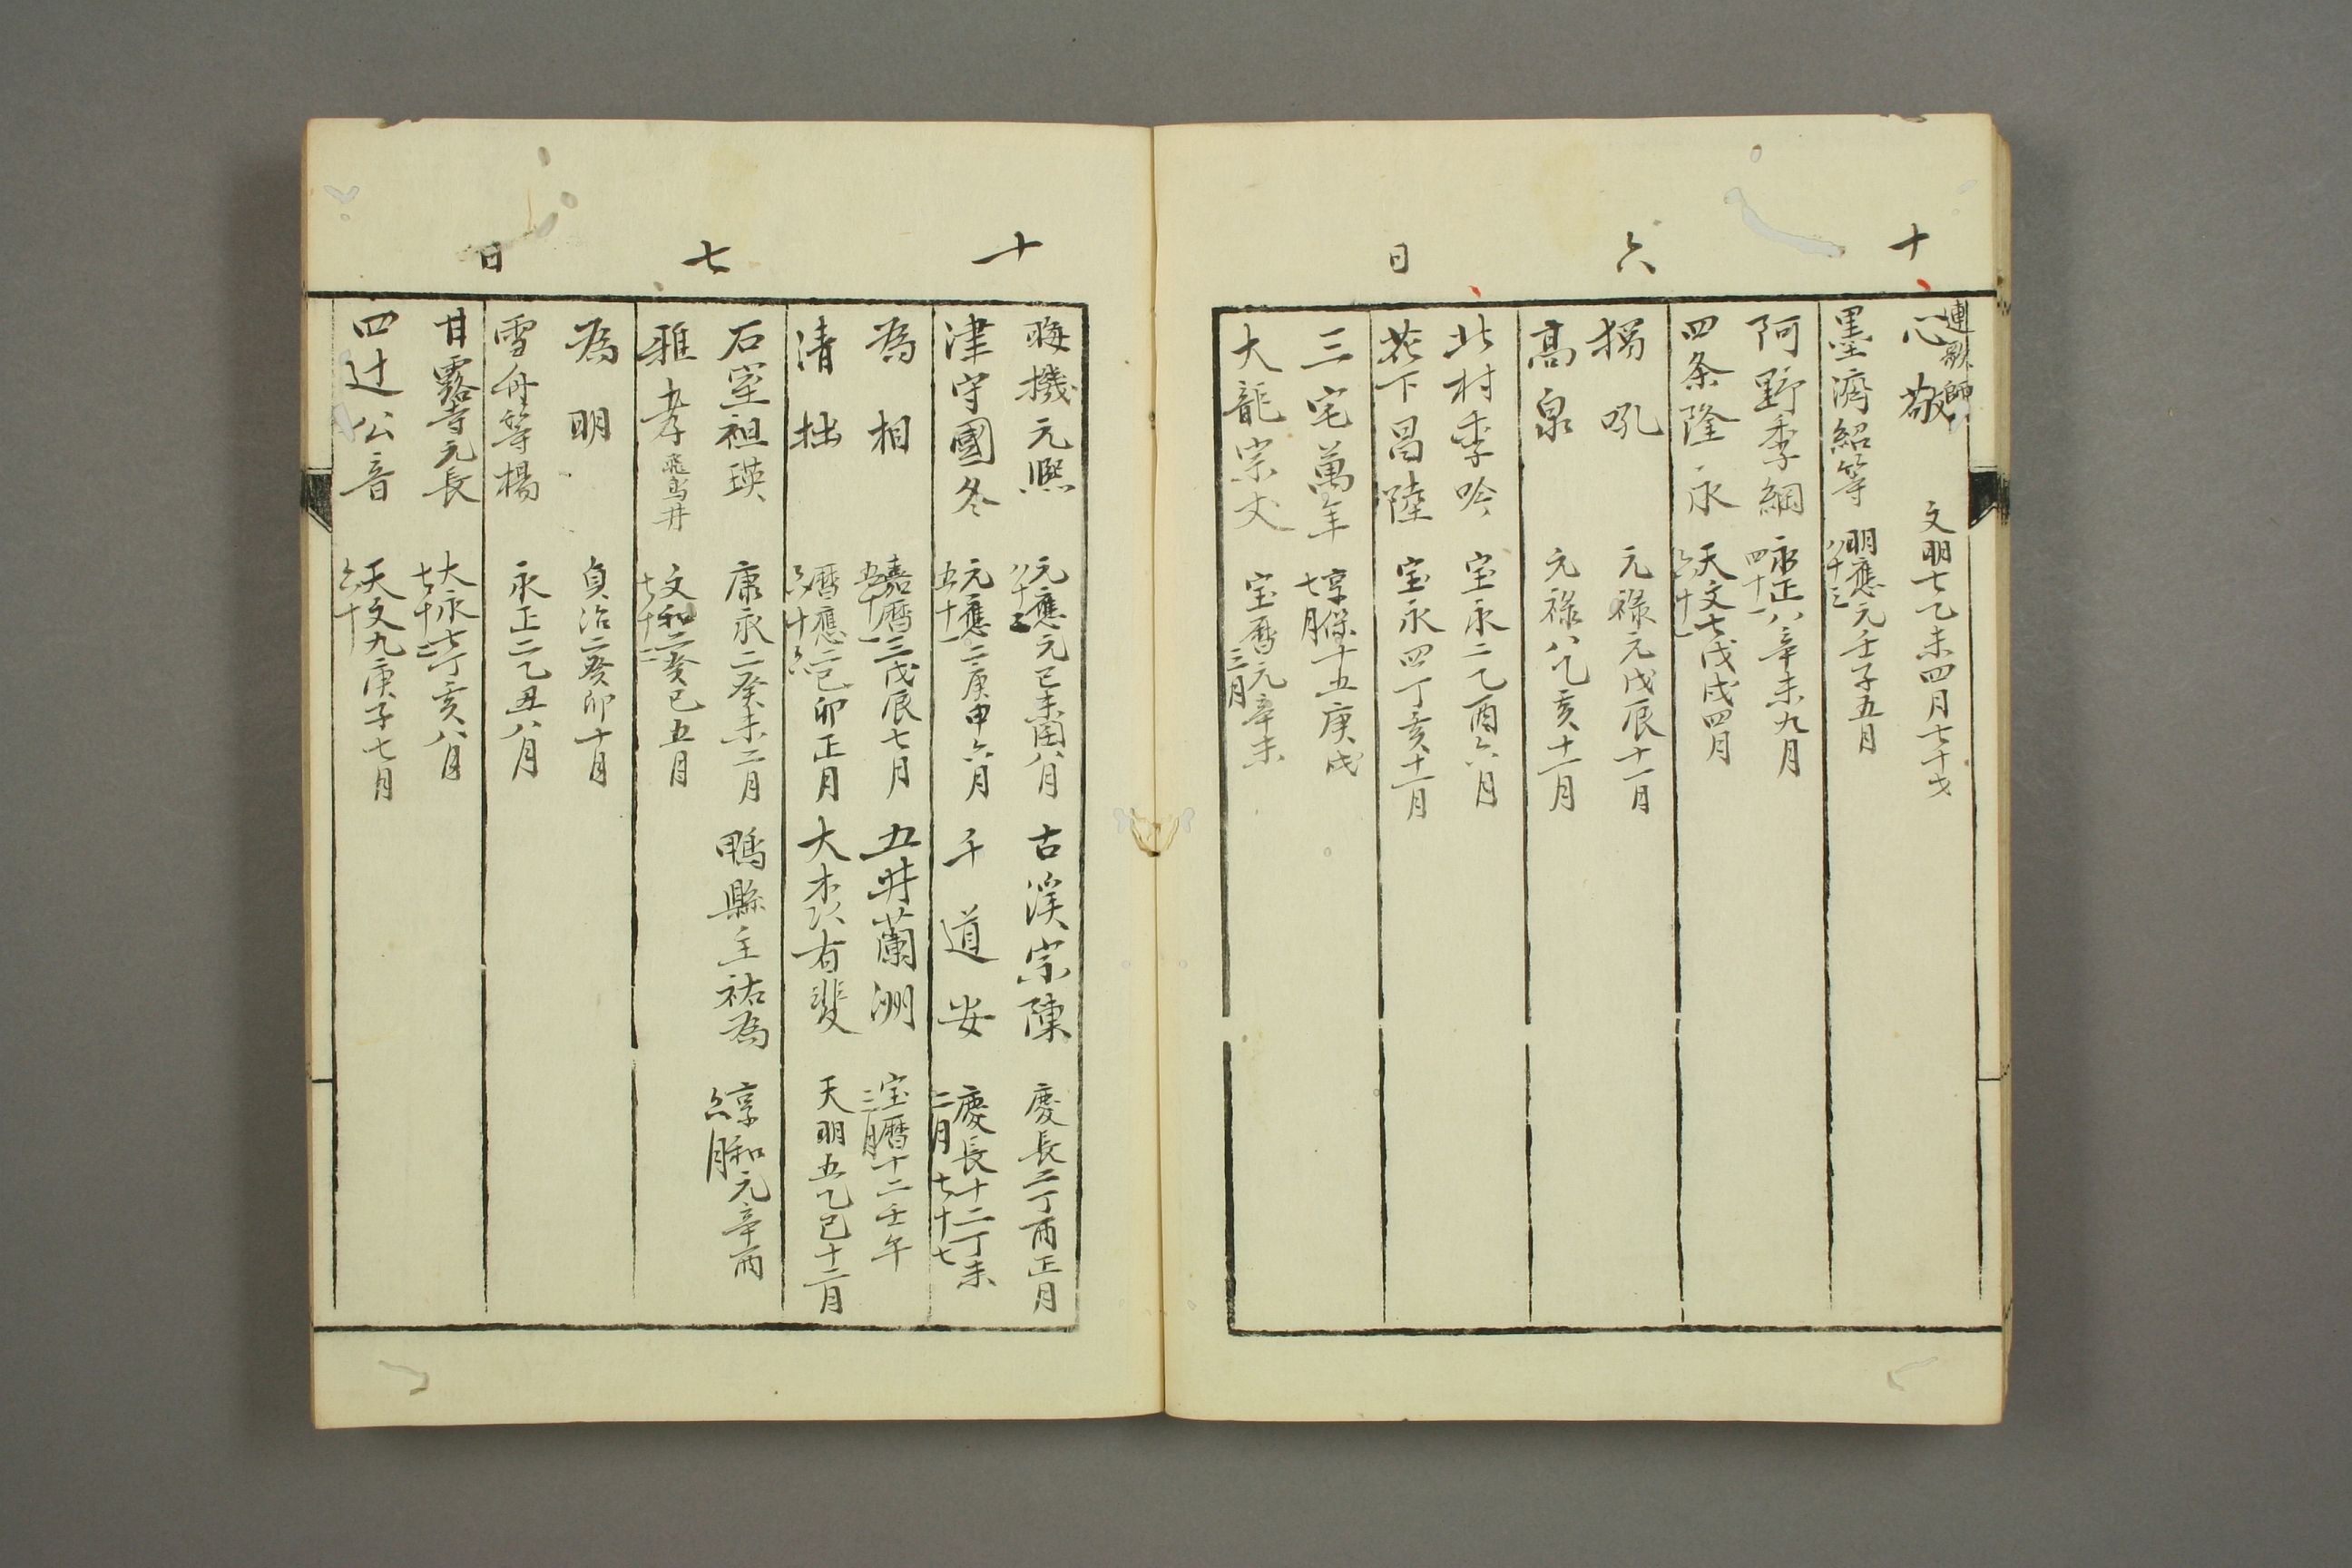 十六日
連歌師
心敬 文明七乙未四月七十才
墨濟紹等 明應元壬子五月
八十三
阿野季綱 永正八辛未九月
四十一
四条隆永 天文七戊戌四月
六十一
独吼 元禄元戊辰十一月
高泉 元禄八乙亥十一月
北村季吟 宝永二乙酉六月
花下昌陸 宝永四丁亥十一月
三宅萬年 享保十五庚戌
七月
大龍宗丈 宝暦元辛未
三月
十七日
晦機元熙 元應元己未閏八月
古溪宗陳 慶長二丁酉正月
津守國冬 元應二庚申六月
五十一
千道安 慶長十二丁未
二月 七十七
為相 嘉暦三戊辰七月
五十一
五井蘭洲 宝暦十二壬午
三月
清拙 暦應二己卯正月
六十六
大木次有斐 天明五乙巳十二月
石室祖瑛 康永二癸未二月
鴨縣主祐為 享和元辛酉
六月
雅孝 飛鳥井 文和二癸巳五月
七十二
為明 貞治二癸卯十月
雪舟等楊 永正二乙丑八月
甘露寺元長 大永七丁亥八月
七十二
四辻公音 天文九庚子七月
六十